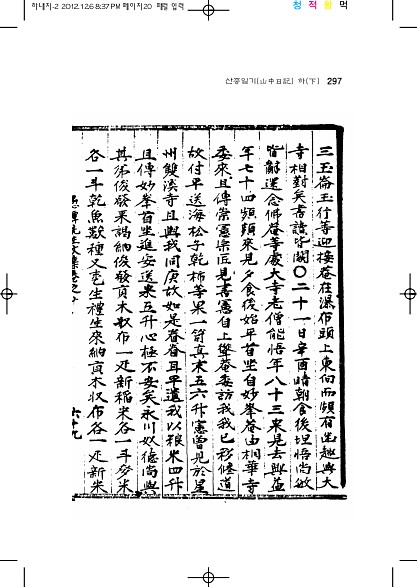 하내지-2 2012.12.6 8:37 PM 페이지20 매럴 입력
청 적 황 먹
산중일기(山中日記) 하(下) 297
三玉崙玉行等迎接菴在瀑布頭上東向而頗有幽趣與大
寺相對矣書讀皆闕○二十一日辛酉晴朝食後坦悟尚敏
皆辭還念佛菴等處大寺老僧能悟年八十三來見去與益
年七十四頻頻來見夕食後始平首坐自妙峯菴由相華寺
委來且傳崇憲
見書憲自上
菴委訪我我已移修道
故付平送海松子乾柿等果一笥真末五六升憲曾見於星
州雙溪寺且與我同庚故如是眷眷耳平遣我以粮米四升
且傳妙峯首坐進安送米五升心極不安矣永川奴德尚與
其弟俊發來謁納俊發貢木奴布一疋新稻米各一斗多米
各一斗乾魚數種又乭生禮生來納貢木奴布各一疋新米
六十九